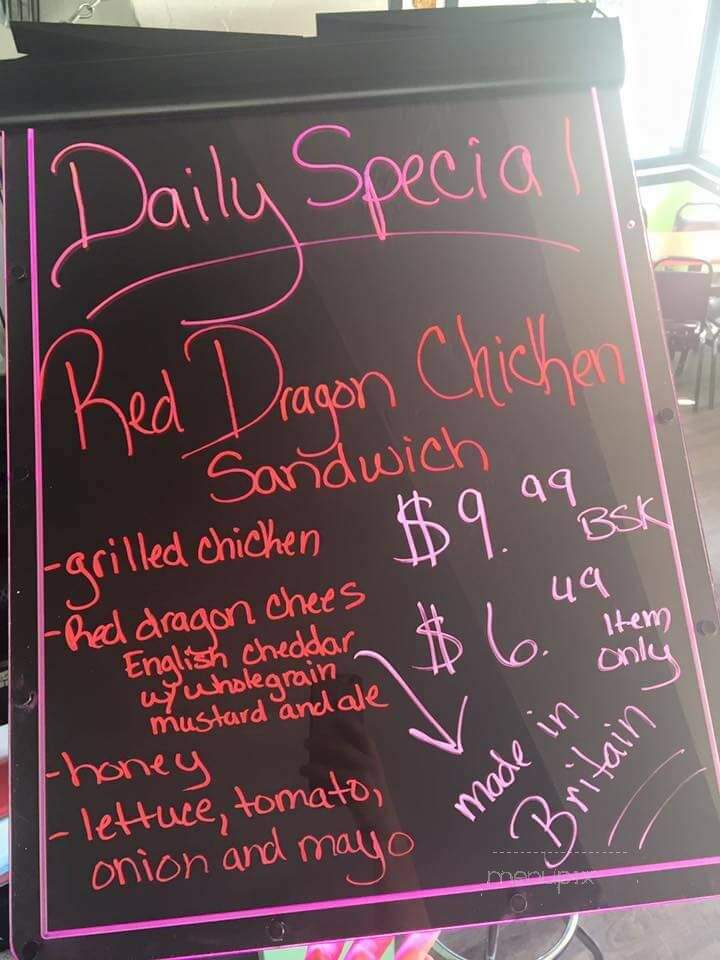 Daily Special
Red Dragon Chicken
Sandwich
-grilled chicken
$9.99
BSK
-Red dragon chees
English cheddar
w/ wholegrain
mustard and ale
$6.49
Item
only
-honey
- lettuce, tomato,
onion and mayo
made in
Britain
menupix